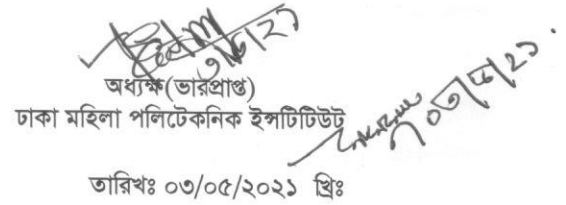 অধ্যক্ষ(ভারপ্রাপ্ত)
ঢাকা মহিলা পলিটেকনিক ইন্সটিটিউট
তারিখঃ ০৩/০৫/২০২১ খ্রিঃ